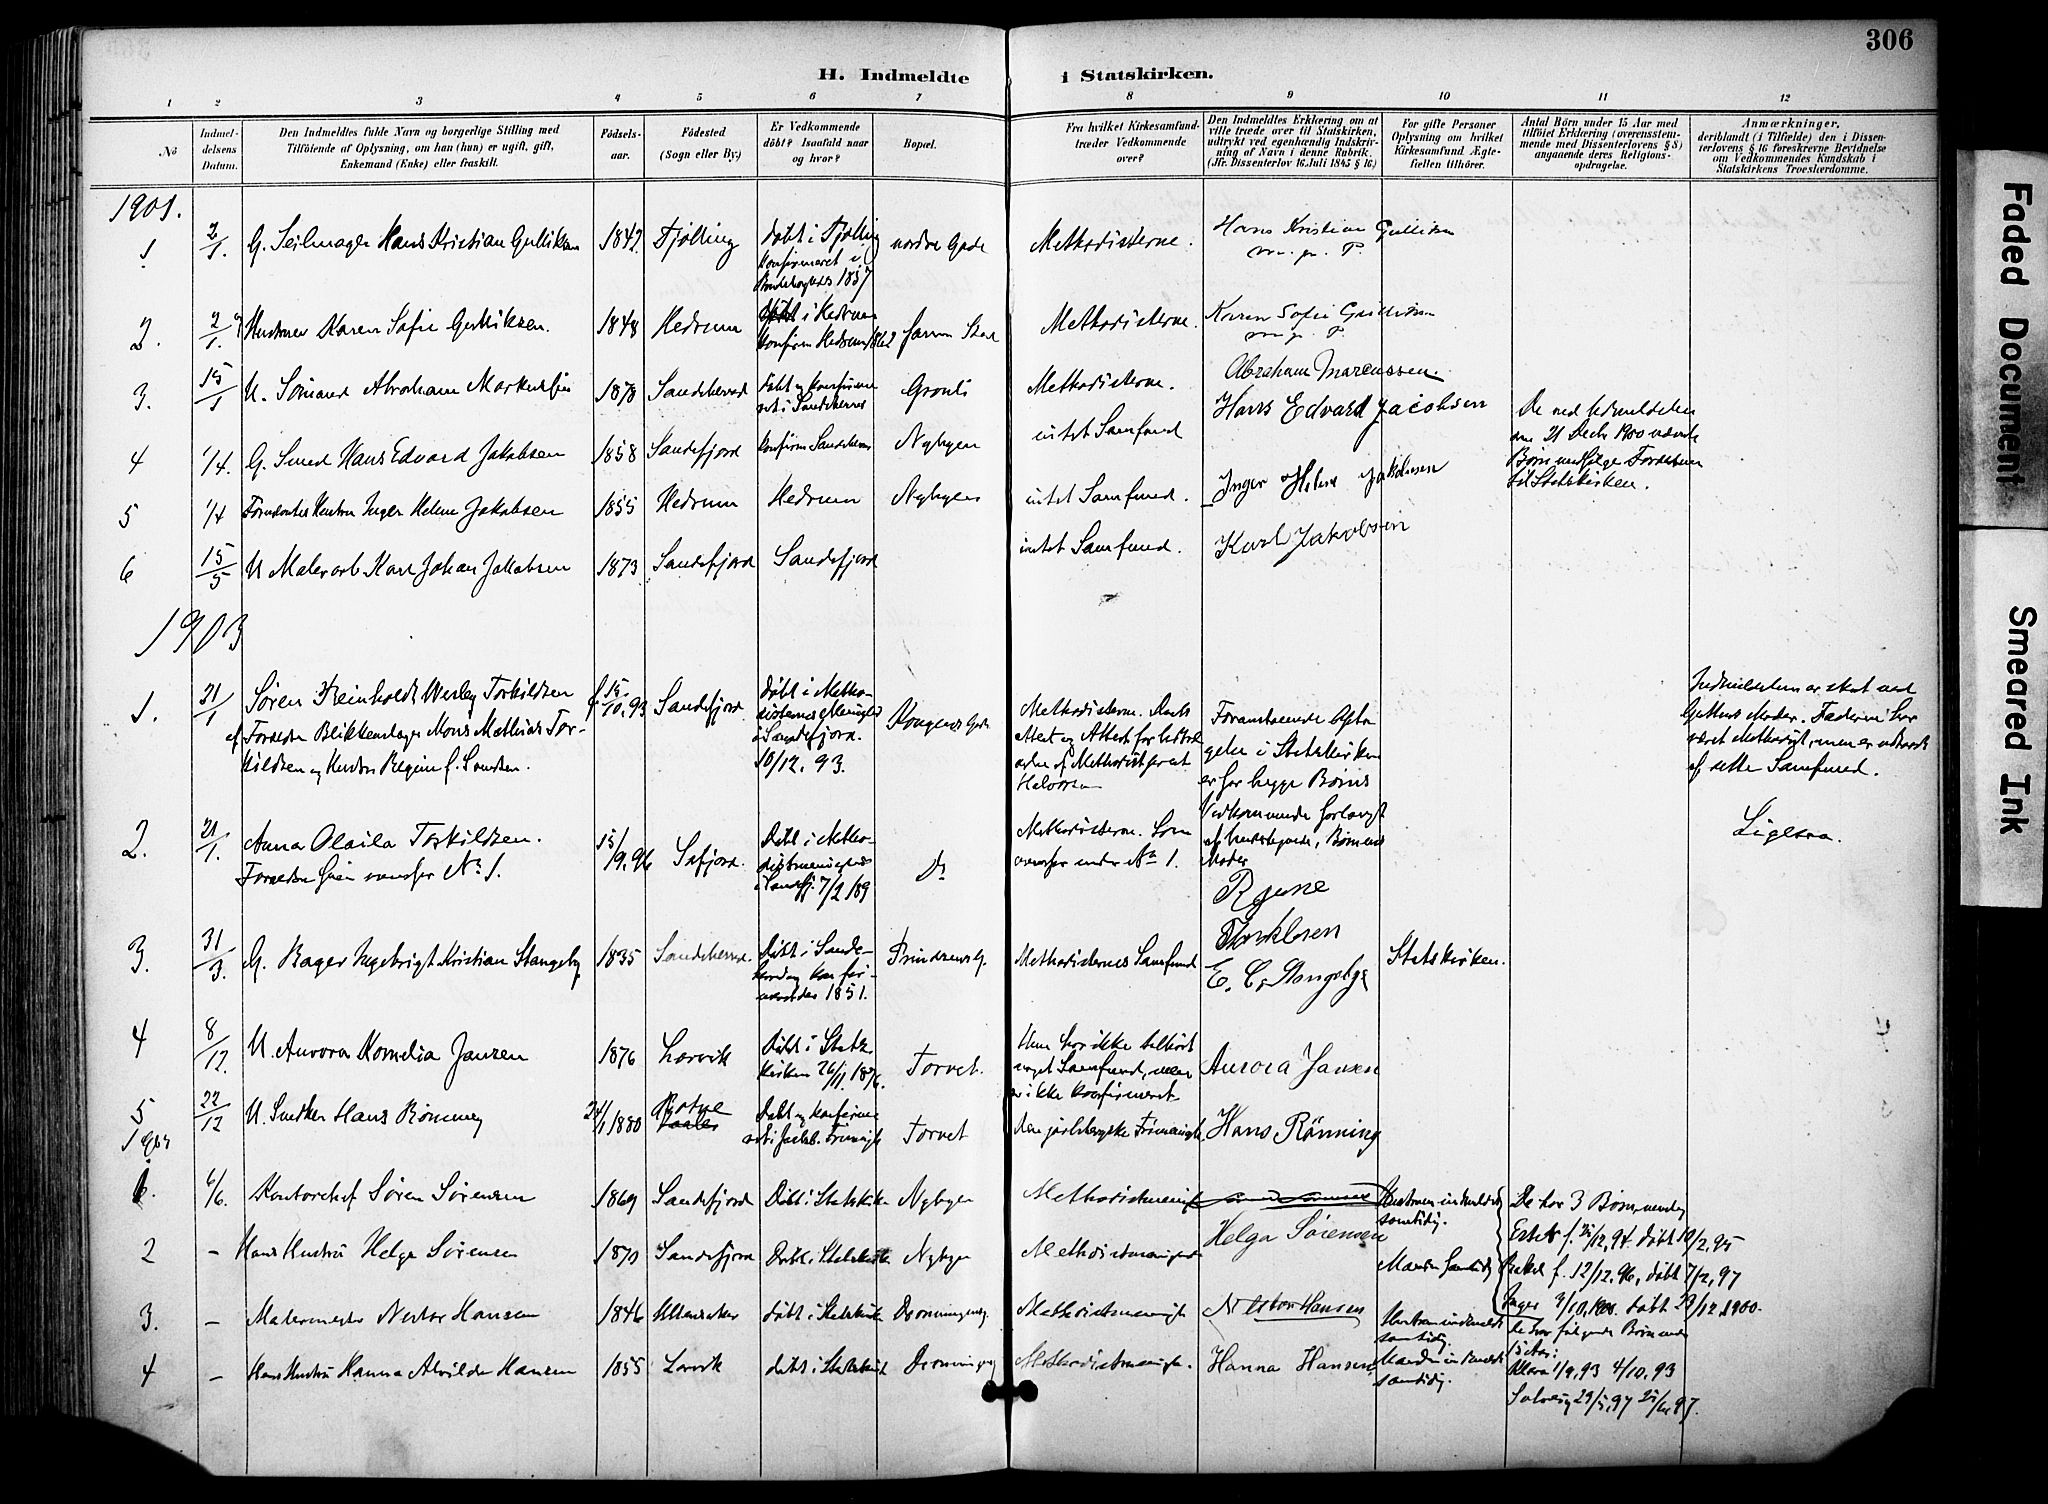 306
H. Indmeldte i Statskirken.
1 2 3 4 5 6 7 8 9 10 11 12
No
Indmel-
delsens
Datum.
Den Indmeldtes fulde Navn og borgerlige Stilling med
Tilföiende af Oplysning, om han (hun) er ugift, gift,
Enkemand (Enke) eller fraskilt.
Födsels-
aar.
Födested
(Sogn eller By.)
Er Vedkommende
döbt? Isaafald naar
og hvor?
Bopæl.
Fra hvilket Kirkesamfund
træder Vedkommende
over?
Den Indmeldtes Erklæring om at
ville træde over til Statskirken,
udtrykt ved egenhændig Indskriv-
ning af Navn i denne Rubrik.
(Jfr. Dissenterlov 16. Juli 1845 § 16)
For gifte Personer
Oplysning om hvilket
Kirkesamfund Ægte-
fællen tilhörer.
Antal Börn under 15 Aar med
tilföiet Erklæring (overensstem-
mende med Dissenterlovens § 8)
angaaende deres Religions-
opdragelse.
Anmærkninger,
deriblandt (i Tilfælde) den i Dissen-
terlovens § 16 foreskrevne Bevidnelse
om Vedkommendes Kundskab i
Statskirkens Troeslærdomme.
1901.
1. 2/1. G. Seilmager Hans Kristian Gulliksen 1842 Tjølling Døbt i Tjølling
konfirmeret i
1857
nordre Gade Methodisterne. Hans Kristian Gullisen
m. p. P.
2. 2/1. Hustruen Karen Sofie Gulliksen. 1848 Hedrum Døbt i Hedrum
konfirm Hedrum 1862 samm Sted Methodisterne. Karen Sofie Gullisen
m. p. P.
3. 15/1 U. Sømand Abraham Markussen 1878 Sandeherred Døbt og konfirme
ret i Sandeherred Methodisterne. Abraham Marcussen.
4 1/4. G. Smed Hans Edvard Jakobsen 1858 Sandefjord konfirm Sandeherred Nybyen intet Samfund Hans Edvard Jacobsen
De ved Udmeldelsen
den 21 Decbr 1900 nævnte
Børn medfølge Forældrene
til Statskirken.
5 1/4 Hustru Inger Helene Jakobsen 1855 Hedrum Hedrum Nybyen intet Samfund. Inger Helene Jakobsen
6 15/5 U Malerarb Karl Johan Jakobsen 1873 Sandefjord Sandefjord intet Samfund. Karl Jakobsen
1903
1. 21/1 Søren Reinholdt Wesley Torkildsen
af Forældre Blikkenslager Mons Mathias Tor-
kildsen og Hustru Regine f. Sandsen.
f. 15/10. 93 Sandefjord Døbt i Metho-
disternes Menighed
i Sandefjord.
10/12. 93.
Kongens Gade
Methodisterne.
Attest og Attest for
af Methodistprest
Halvorsen
Foranstaaende Opta
gelse i Statskirken
er for begge Børns
Vedkommende forlangt
af undertegnede, Børnenes
Moder
Regine
Torkilsen
Indmeldelsen er skeet ved
Guttens Moder. Faderen har
været Methodist, men er udtraadt
af dette Samfund.
2. 21/1. Anna Olaila Torkildsen.
Forældre ovenfor No 1.
15/9. 96 S.fjord. Døbt i Metho-
distmenighed
i Sandefj. 7/2 189
Do Methodisterne. Som
ovenfor under No 1.
Ligesaa.
3. 31/3. G. Bager Ingebrigt Kristian Stangeby 1835 Sandeherred. Døbt i Sande-
herred og konfir-
meret der 1851.
Prindsensg. Methodisternes Samfund E. C. Stangebye Statskirken.
4 8/12. U. Aurora Kornelia Jansen 1876 Larvik Døbt i Stats
kirken 26/11. 1876. Torvet.
Hun har ikke tilhørt
noget Samfund, men
er ikke konfirmeret
Aurora Jansen
5 22/12 U. Snedker Hans Rønning 24/1 1880 Døbt og konfirme
ret i Jarlsb. Frimenigh. Torvet den jarlsbergske Frimenigh. Hans Rönning
1904
1. 6/6. Kontorchef Søren Sørensen 1869 Sandefjord Døbt i Statskirken Nybyen Methodistmenigh.
Hustruen indmeldt
samtidig.
De har 3 Børn, nemlig
2 – Hans Hustru Helga Sørensen 1870 Sandefjord Døbt i Statskirken Nybyen Methodistmenighed Helga Sörensen
Manden samtidig
Ester f. 31/12, 94. døbt 10/2, 95
Rakel f. 12/12. 96, døbt 7/2, 97
Inger døbt 29/12 1900.
3. – Malermester Nestor Hansen 1846 døbt i Statskirken Dronningensg. Methodistmenigh Nestor Hansen
Hustruen indmeldt
samtidig.
De har følgende Børn under
15 Aar:
4 – Hans Hustru Hanna Alvilde Hansen 1855 Larvik døbt i Statskirken Dronningensg Methodistmenigh. Hanna Hansen
Manden indmeldt
samtidig.
Klara 1/9, 93 4/10, 93
Solveig 29/5, 97
Faded Document
Smeared Ink